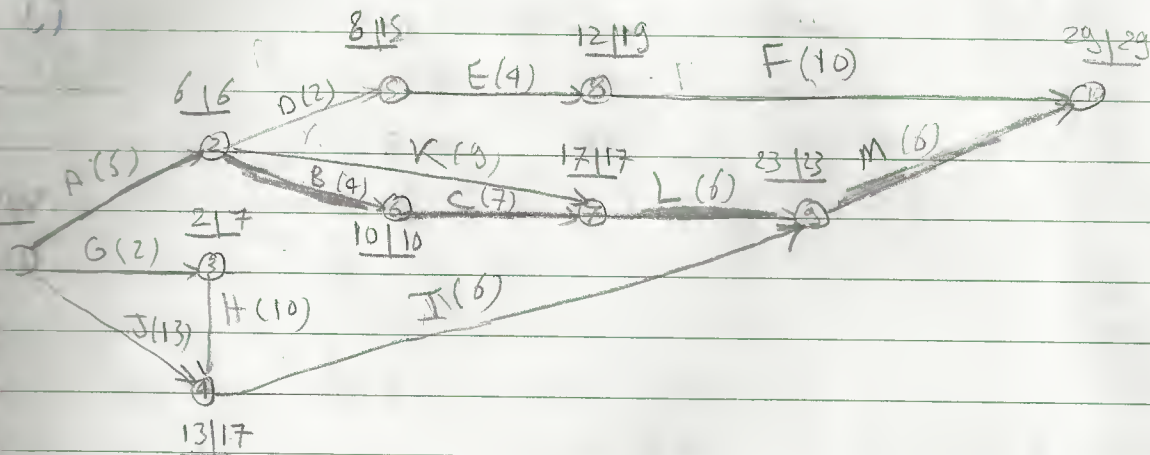 8|15
12|19
29|29
6|6
D(2)
5
E(4)
8
F(10)
2
K(9)
17|17
23|23
M(6)
A(5)
B(4)
6
C(7)
7
L(6)
9
2|7
10|10
1
G(2)
3
J(13)
H(10)
I(6)
4
13|17